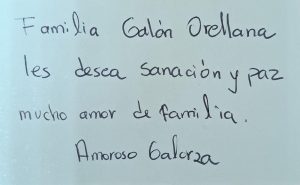 Familia Galón Orellana
les desea sanación y paz
mucho amor de familia.
Amoroso Galorza